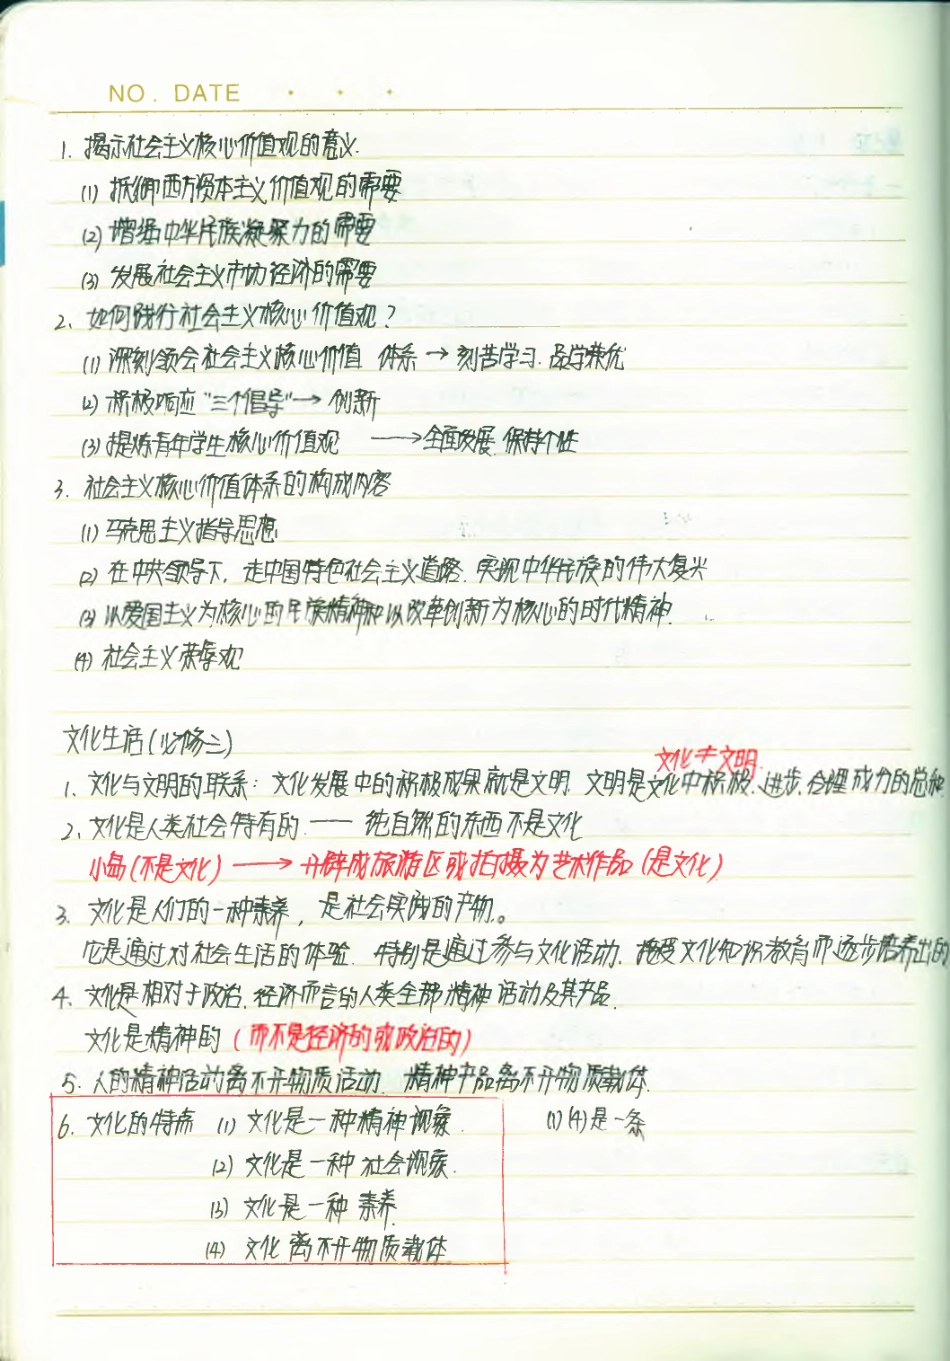 NO. DATE
1. 揭示社会主义核心价值观的意义.
(1) 抵御西方资本主义价值观的需要
(2) 增强中华民族凝聚力的需要
(3) 发展社会主义市场经济的需要
2、如何践行社会主义核心价值观？
(1) 深刻领会社会主义核心价值 体系 → 刻苦学习. 品学兼优
(2) 积极响应“三个倡导”→ 创新
(3) 提炼青年学生核心价值观 ——→全面发展. 保持个性
3. 社会主义核心价值体系的构成内容
(1) 马克思主义指导思想
(2) 在中央领导下, 走中国特色社会主义道路. 实现中华民族的伟大复兴
(3) 以爱国主义为核心的民族精神和以改革创新为核心的时代精神.
(4) 社会主义荣辱观
文化生活(必修三)
文化≠文明.
1、文化与文明的联系: 文化发展中的积极成果就是文明. 文明是文化中积极. 进步. 合理成分的总和
2、文化是人类社会特有的. —— 纯自然的东西不是文化
小岛(不是文化) ——→ 开辟成旅游区或拍摄为艺术作品 (是文化)
3、文化是人们的一种素养, 是社会实践的产物。
它是通过对社会生活的体验. 特别是通过参与文化活动. 接受文化知识教育而逐步培养出的
4、文化是相对于政治. 经济而言的人类全部精神活动及其产品.
文化是精神的 (而不是经济的或政治的)
5. 人的精神活动离不开物质活动. 精神产品离不开物质载体.
6. 文化的特点 (1) 文化是一种精神现象. (1)(4)是一条
(2) 文化是一种社会现象.
(3) 文化是一种 素养.
(4) 文化离不开物质载体.